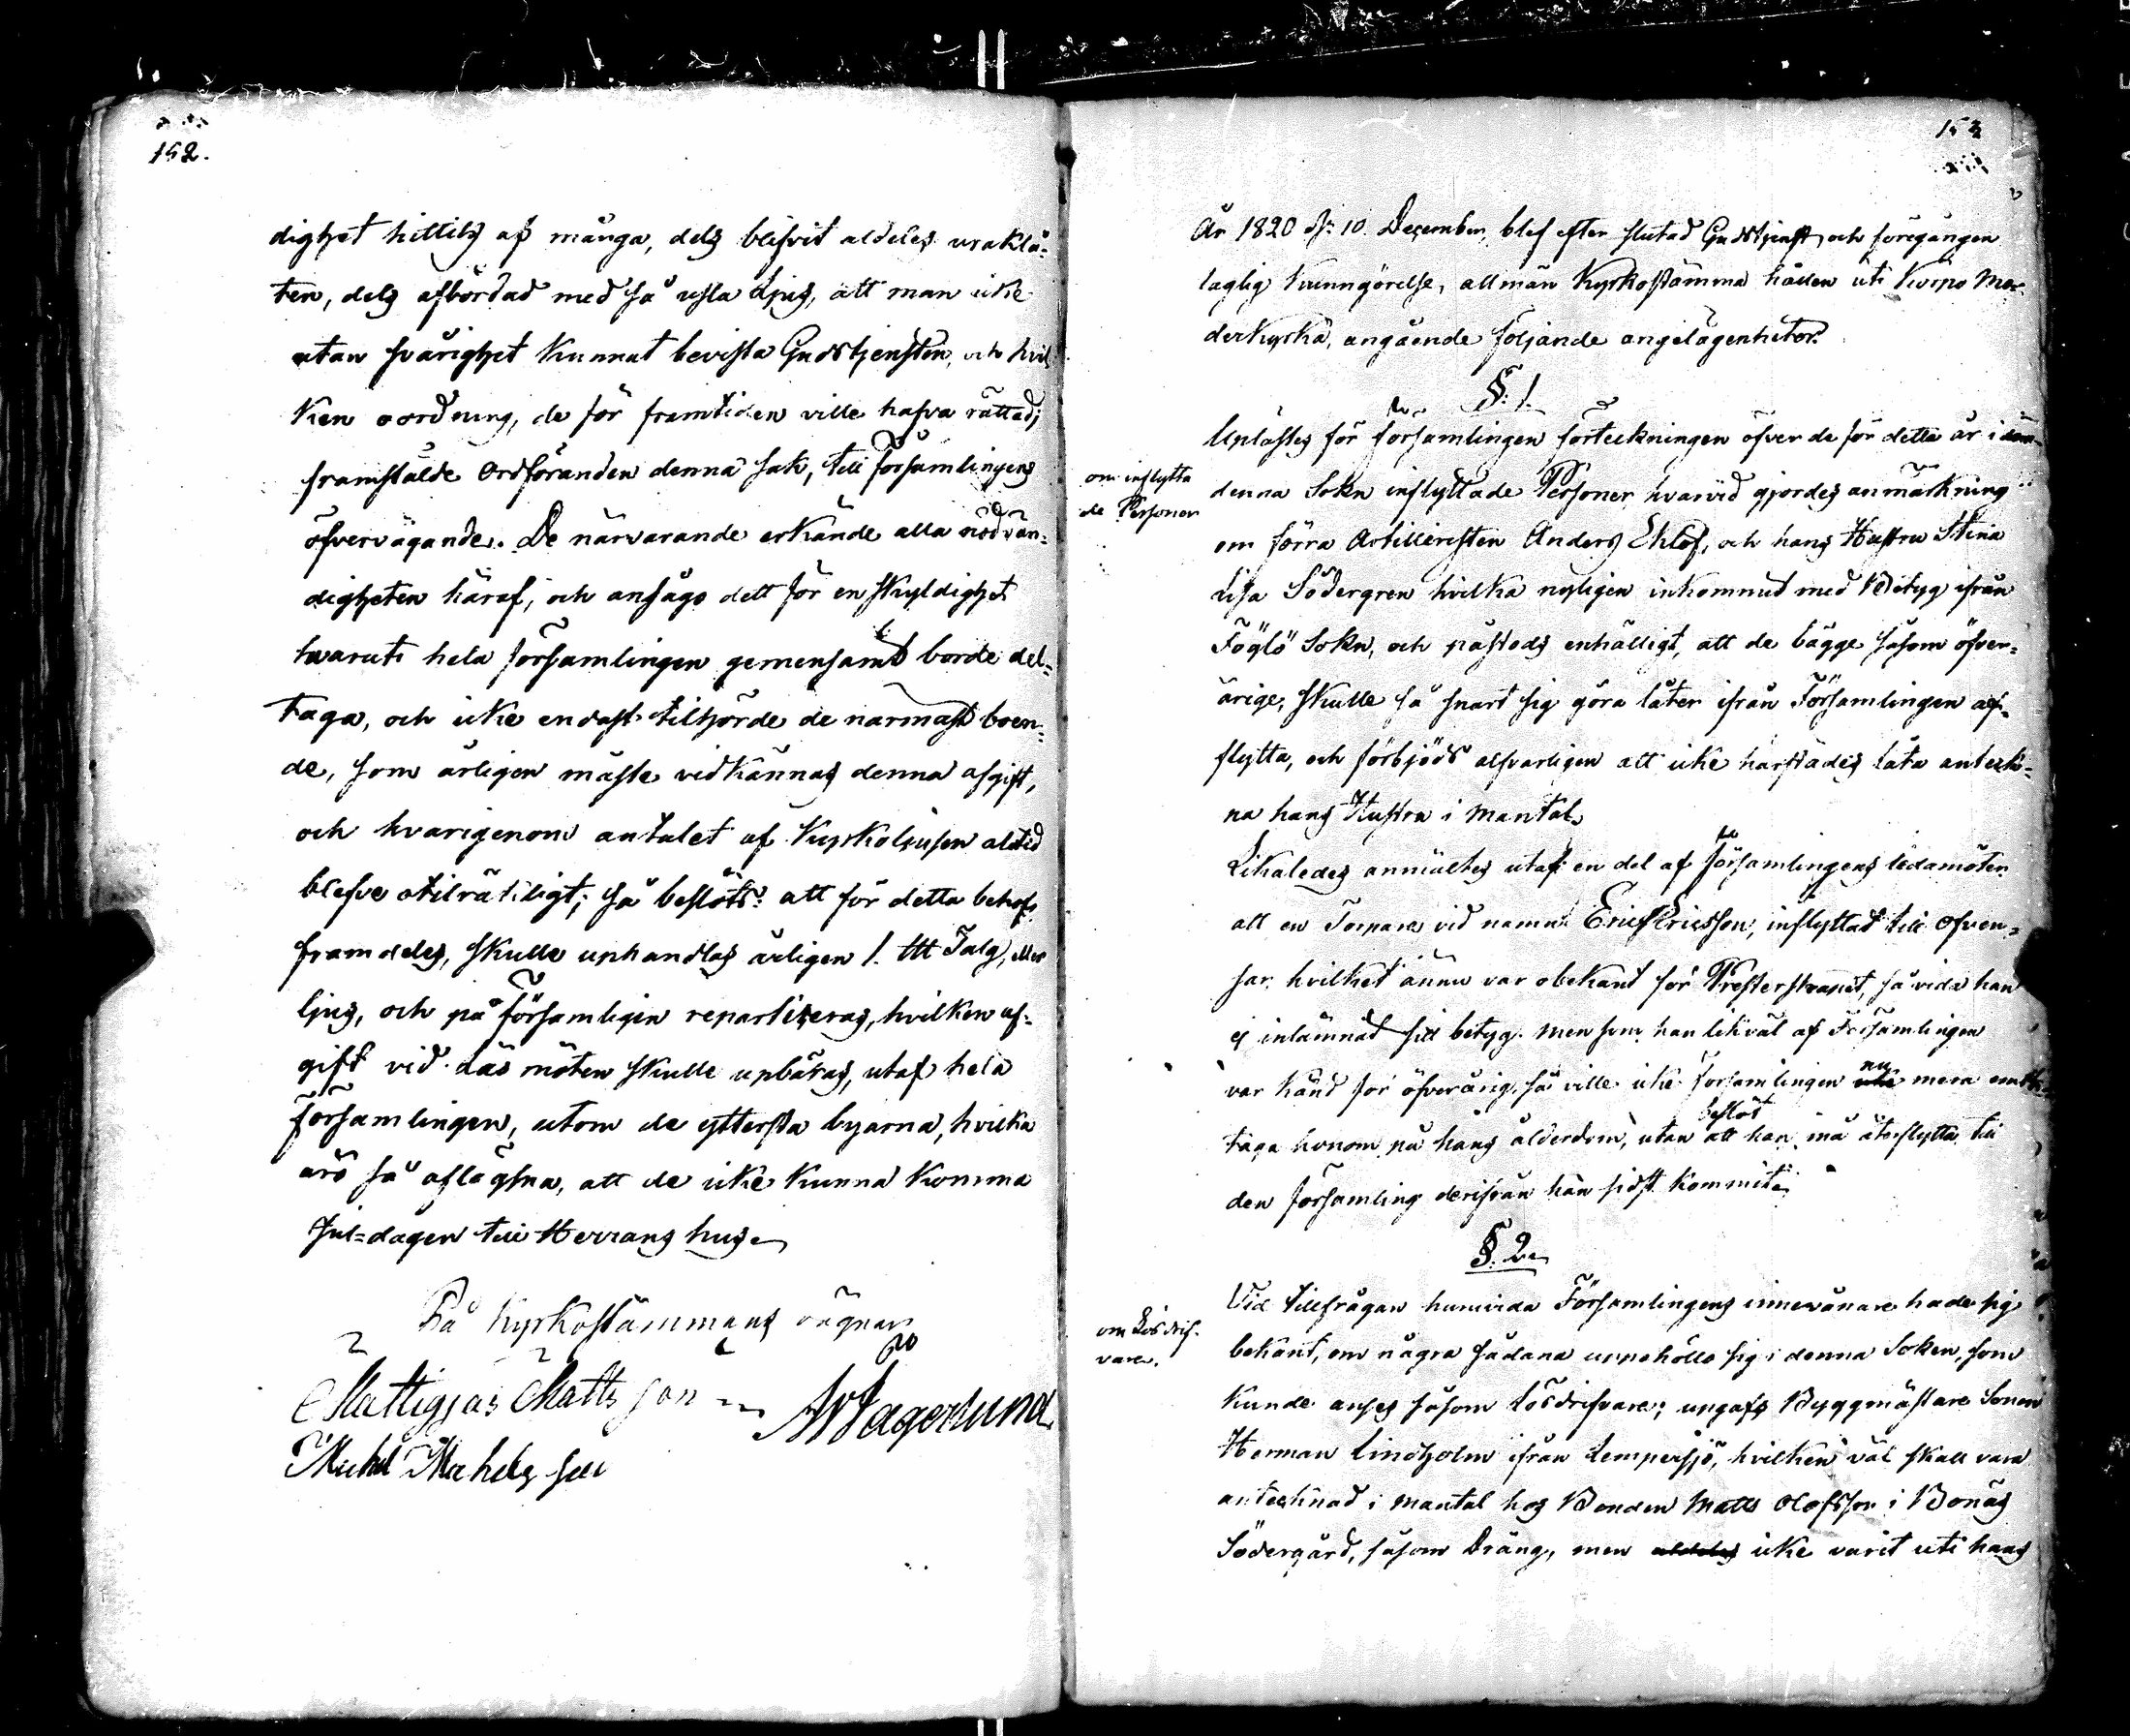 152.
dighet hittils af många, dels blifvit aldeles uraklå-
ten, dels afbördad med så usla Ljus, att man icke
utan svårighet kunnat bevista Gudstjensten, och hvil
ken oordning, de för framtiden ville hafva rättad;
framstälde Ordföranden denna sak, till Församlingens
öfvervägande. De närvarande erkände alla nödvän-
digheten häraf, och ansågo dett för en skyldighet
hvaruti hela församlingen gemensamt borde del-
taga, och icke endast tilhörde de närmast boen-
de, som årligen måste vidkännas denna afgift,
och hvarigenom antalet af Kyrkoljusen altid
blefve otilräkligt; så beslöts: att för detta behof,
framdeles, skulle uphandlas årligen 1. Ltt Talg, eller
ljus, och på församligin repartiseras, hvilken af-
gift vid Läs möten skulle upbäras, utaf hela
församlingen, utom de yttersta byarna, hvilka
äro så aflägsna, att de icke kunna komma
Jul-dagen till Herrans hus.
På Kyrkostämmans vägnar
Mattigjas Matts son
AWagerlund
Michel Michels son
153
År 1820 d: 10 December, blef efter slutad Gudstjenst, och föregången
laglig kunngörelse, allmän Kyrkostämma hållen uti Korpo Mo-
derkyrka, angående följande angelägenheter.
§. 1.
Uplästes för församlingen förteckningen öfver de för detta år i
om inflytta
de Personer
denna Sokn inflyttade Personer, hvarvid gjordes anmärkning
om förra Artilleristen Anders Ehlöf, och hans Hustru Stina
Lisa Södergren hvilka nyligen inkommit med Betyg ifrån
Föglö Sokn, och påstods enhälligt, att de bägge såsom öfver-
årige, skulle så snart sig göra låter ifrån Församlingen af-
flytta, och förbjöds alfvarligen att icke härstädes låta anteck-
na hans Hustru i mantal.
Likaledes anmältes utaf en del af församlingens ledamöter
att en Torpare vid namn Eric Ericsson, inflyttat till Ofven-
sar, hvilket ännu var obekant för Presterskapet, så vida han
ej inlämnat sitt betyg. Men som han likväl af Församlingen
var känd för öfverårig, så ville icke församlingen nu mera emot-
taga honom på hans ålderdom, utan beslöt att han må återflytta till
den församling derifrån han sidst kommit.
§. 2.
om Lösdrif-
vare.
Vid tillfrågan huruvida Församlingens innevånare hade sig
bekant, om några sådana uppehöllo sig i denna Soken, som
kunde anses såsom Lösdrifvare; upgafs Byggmästare Sonen
Herman Lindholm ifrån Lempersjö, hvilken väl skall vara
antecknad i mantal hos Bonden Matts Olofsson i Bonäs
Södergård, såsom Dräng, men aldeles icke varit uti hans